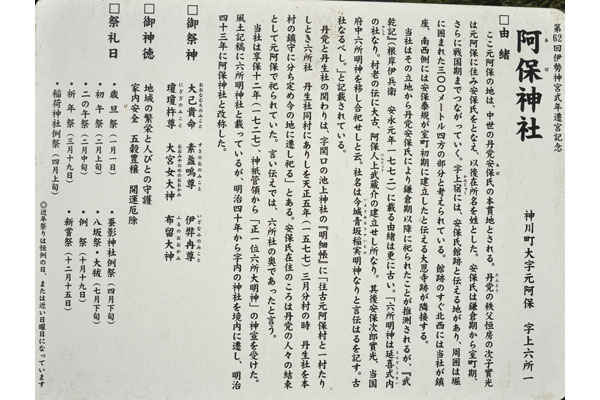 第62回伊勢神宮式年遷宮記念
阿保神社
あぼ
神川町大字元阿保 字上六所一
□由緒
ここ元阿保の地は、中世の丹党安保氏の本貫地とされる。丹党の秩父恒房の次子實光
は元阿保に住み安保氏をとなえ、以後在所名を姓とした。安保氏は鎌倉期から室町期、
さらに戦国期までつながっていく。字上宿には、安保氏館跡と伝える地があり、周囲は堀
に囲まれた三〇〇メートル四方の部分と考えられている。館跡のすぐ北西には当社が鎮
座、南西側には安保泰規が室町初期に建立したと伝える大恩寺跡が隣接する。
当社はその立地から丹党安保氏により鎌倉期以降に祀られたことが推測されるが、『武
乾記』(根岸伊兵衛 安永元年一七七二)に載る由緒は更に古い。「六所明神は延喜式内
の社なり、村老の伝に大古、阿保人上武蔵介の建立せし所なり。其後安保次郎實光、当国
府中六所明神を移し合祀せしと云、社名は今城青坂稲実明神なりと言伝はるを記す。古
社なるべし。」と記載されている。
丹党と丹生社の関わりは、字関口の池上神社の『明細帳』に「往古元阿保村と一村たり
しとき六所社 丹生社同村にありしを天正五年(一五七七)三月分村の時 丹生社を本
村の鎮守に分ち定め今の地に遷し祀る」とある。安保氏在住のころは丹党の人々の結束
として元阿保で祀られていた。言い伝えでは、六所社の奥であったと言う。
当社は享保十二年(一七二七)、神祇管領から「正一位六所大明神」の神宣を受けた。
風土記稿に六所明神社と載っているが、明治四十年から字内の神社を境内に遷し、明治
四十三年に阿保神社と改称した。
□御祭神
大己貴命 素盞嗚尊 伊弉冉尊
おおむちのみこと すさのおのみこと いざなみのみこと
瓊瓊杵尊 大宮女大神 布留大神
ににぎのみこと おおみやのめのおおかみ ふるのおおかみ
□御神徳
地域の繁栄と人びとの守護
家内安全 五穀豊穣 開運厄除
□祭礼日
・歳旦祭(一月一日) ・蚕影神社例祭(四月下旬)
・初午祭(二月上旬) ・八坂祭・大祓(七月下旬)
・二の午祭(二月中旬) ・例祭(十月十九日)
・祈年祭(三月十九日) ・新嘗祭(十二月十五日)
・稲荷神社例祭(四月上旬)
◎近年祭りは恒例の日、または近い日曜日になっています